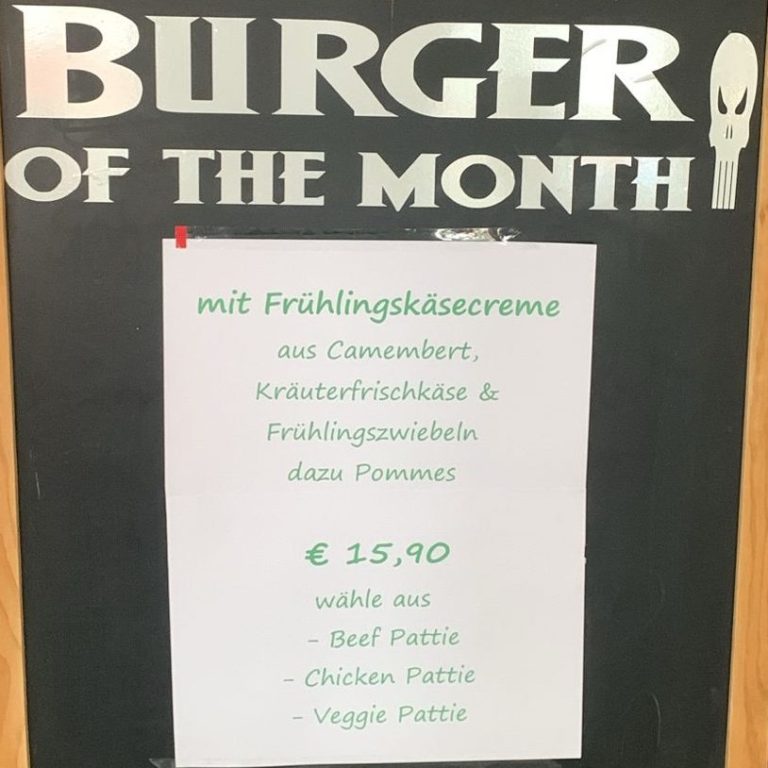 BURGER
OF THE MONTH
mit Frühlingskäsecreme
aus Camembert,
Kräuterfrischkäse &
Frühlingszwiebeln
dazu Pommes
€ 15,90
wähle aus
- Beef Pattie
- Chicken Pattie
- Veggie Pattie